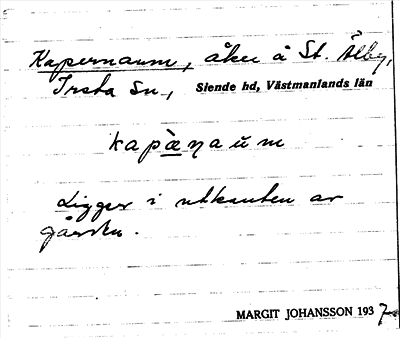 Kapernaum, åker å St. Älby,
Irsta sn., Siende hd, Västmanlands län
kapæ̀ŋaŭm
Ligger i utkanten av
gården.
MARGIT JOHANSSON 1937